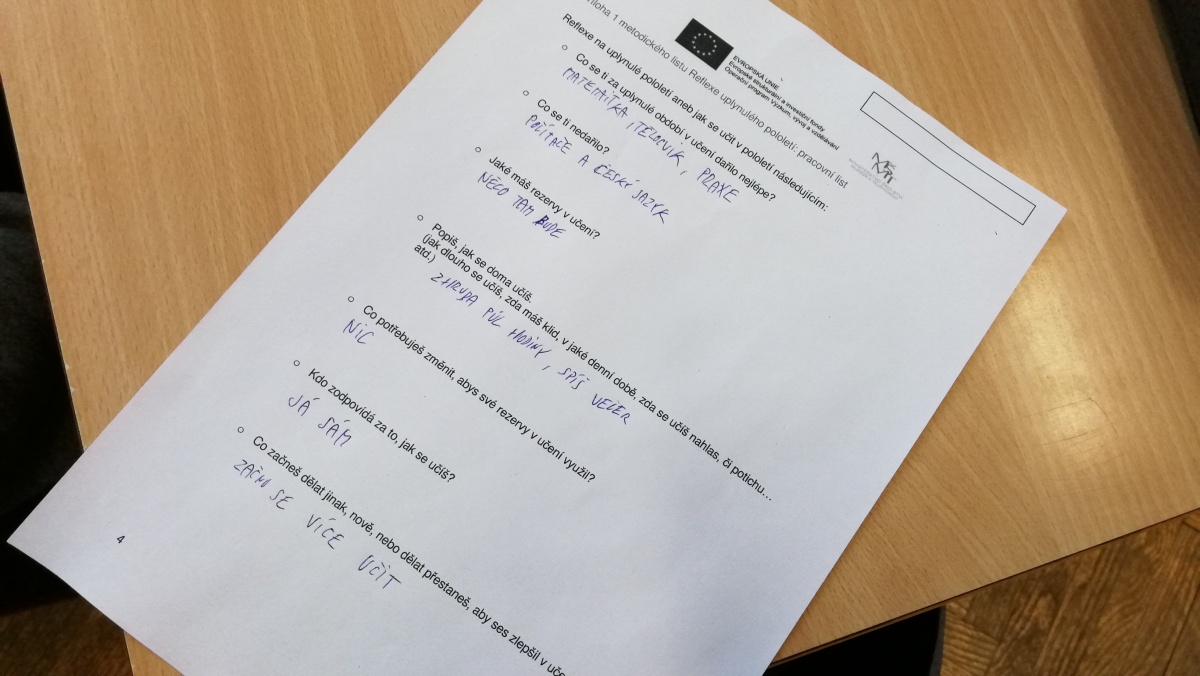 íloha 1 metodického listu Reflexe uplynulého pololetí: pracovní list
EVROPSKÁ UNIE
Evropské strukturální a investiční fondy
Operační program Výzkum, vývoj a vzdělávání
Reflexe na uplynulé pololetí aneb jak se učit v pololetí následujícím:
Co se ti za uplynulé období v učení dařilo nejlépe?
MATEMATIKA, TĚLOCVIK, PRAXE
Co se ti nedařilo?
POČÍTAČE A ČESKÝ JAZYK
Jaké máš rezervy v učení?
NĚCO TAM BUDE
Popiš, jak se doma učíš.
(jak dlouho se učíš, zda máš klid, v jaké denní době, zda se učíš nahlas, či potichu...
atd.)
ZHRUBA PŮL HODINY, SPÍŠ VEČER
Co potřebuješ změnit, abys své rezervy v učení využil?
NIC
Kdo zodpovídá za to, jak se učíš?
JÁ SÁM
Co začneš dělat jinak, nově, nebo dělat přestaneš, aby ses zlepšil v uče
ZAČNU SE VÍCE UČIT
4